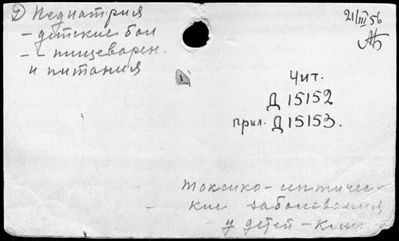 2) Педиатрия
- детские бол
- " - пищеварен.
и питания
21/III 56
Чит.
Д 15152
прил. Д 15153.
Токсико-септичес-
кие заболевания
у детей - Клин